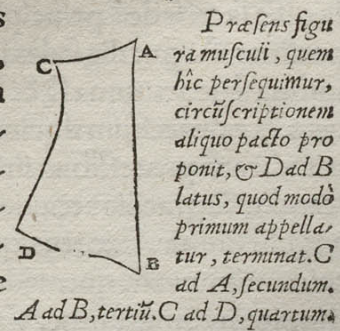 Præsens figu
ra musculi, quem
hîc persequimur,
circūscriptionem
aliquo pacto pro
ponit, & D ad B
latus, quod modò
primum appella-
tur, terminat. C
ad A, secundum.
A ad B, tertiū. C ad D, quartum.
C
A
D
B